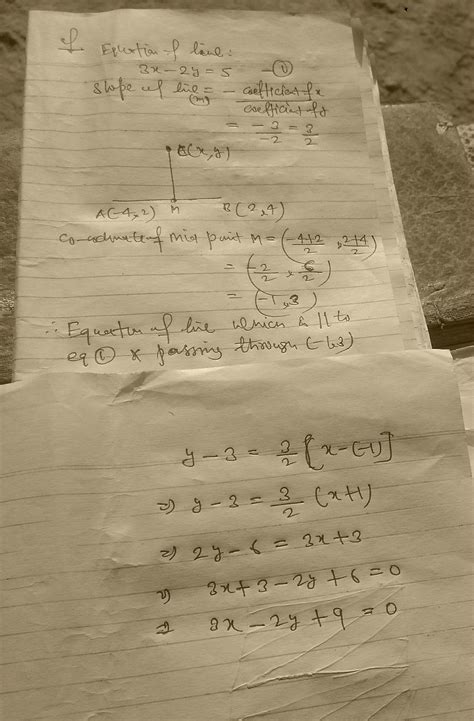 Equation of line:
3x - 2y = 5 - ①
Slope of line (m) = - coefficient of x / coefficient of y
= -3/-2 = 3/2
(x, y)
A(-4, 2) M B(2, 4)
co-ordinate of mid point M = (-4+2/2, 2+4/2)
= (-2/2, 6/2)
= (-1, 3)
∴ Equation of line which is || to
eq ① & passing through (-1, 3)
y - 3 = 3/2 [x - (-1)]
⇒ y - 3 = 3/2 (x+1)
⇒ 2y - 6 = 3x + 3
⇒ 3x + 3 - 2y + 6 = 0
⇒ 3x - 2y + 9 = 0